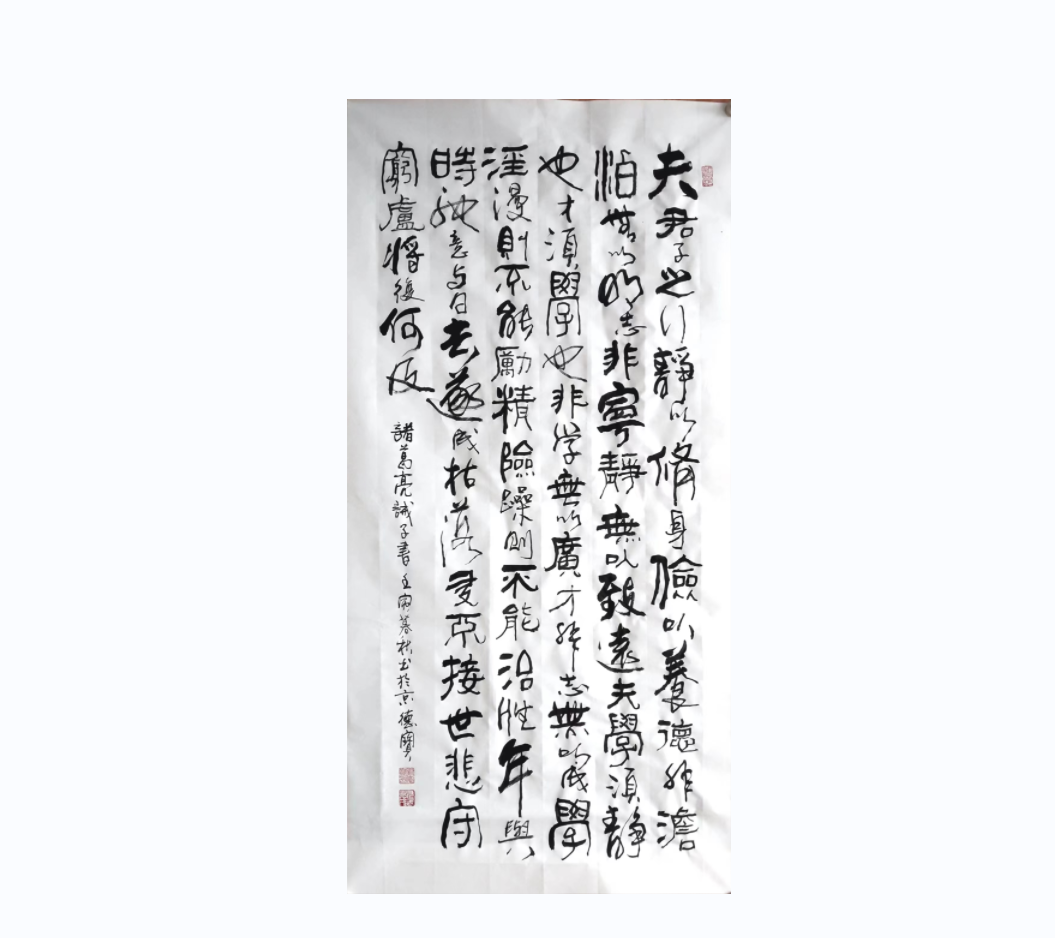 夫君子之行靜以脩身儉以養德非澹
怕無以明志非寧靜無以致遠夫學須靜
也才須學也非学無以廣才非志無以成學
淫漫則不能勵精險躁則不能治性年與
時馳意与日去遂成枯落多不接世悲守
窮盧將復何及
諸葛亮誡子書壬寅暮秋书於京德寶